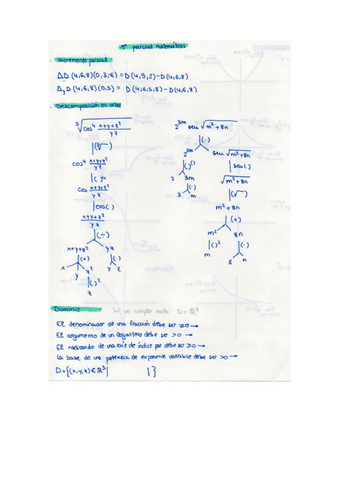 1º parcial matemáticas
Incremento parcial
Δ D (4,6,8)(0,3,6) = D(4,9,2) - D(4,6,8)
Δ₂ D (4,6,8)(0,5) = D(4,6,5,8) - D(4,6,8)
Descomposición en árbol
⁵√cos⁴ (x+y+z²)/(yz)    2³ᵐ sen √m²+8n
|(⁵√)    |(·)
cos⁴ (x+y+z²)/(yz)    2³ᵐ    sen √m²+8n
|( )⁴    |( )^( )    | sen( )
cos (x+y+z²)/(yz)    2    3m    √m²+8n
|cos( )    3    m    |(√)
(x+y+z²)/(yz)    m²+8n
|(÷)    |(+)
x+y+z²    yz    m²    8n
|(+)    |(·)    |( )²    |(·)
x    y    z²    y    z    m    8    n
|( )²
z
Dominio    Si no cumple nada D= ℝ³
El denominador de una fracción debe ser ≠0 →
El argumento de un logaritmo debe ser >0 →
El radicando de una raíz de índice par debe ser ≥0 →
la base de una potencia de exponente variable debe ser >0 →
D={(x,y,z)∈ℝ³|    |}